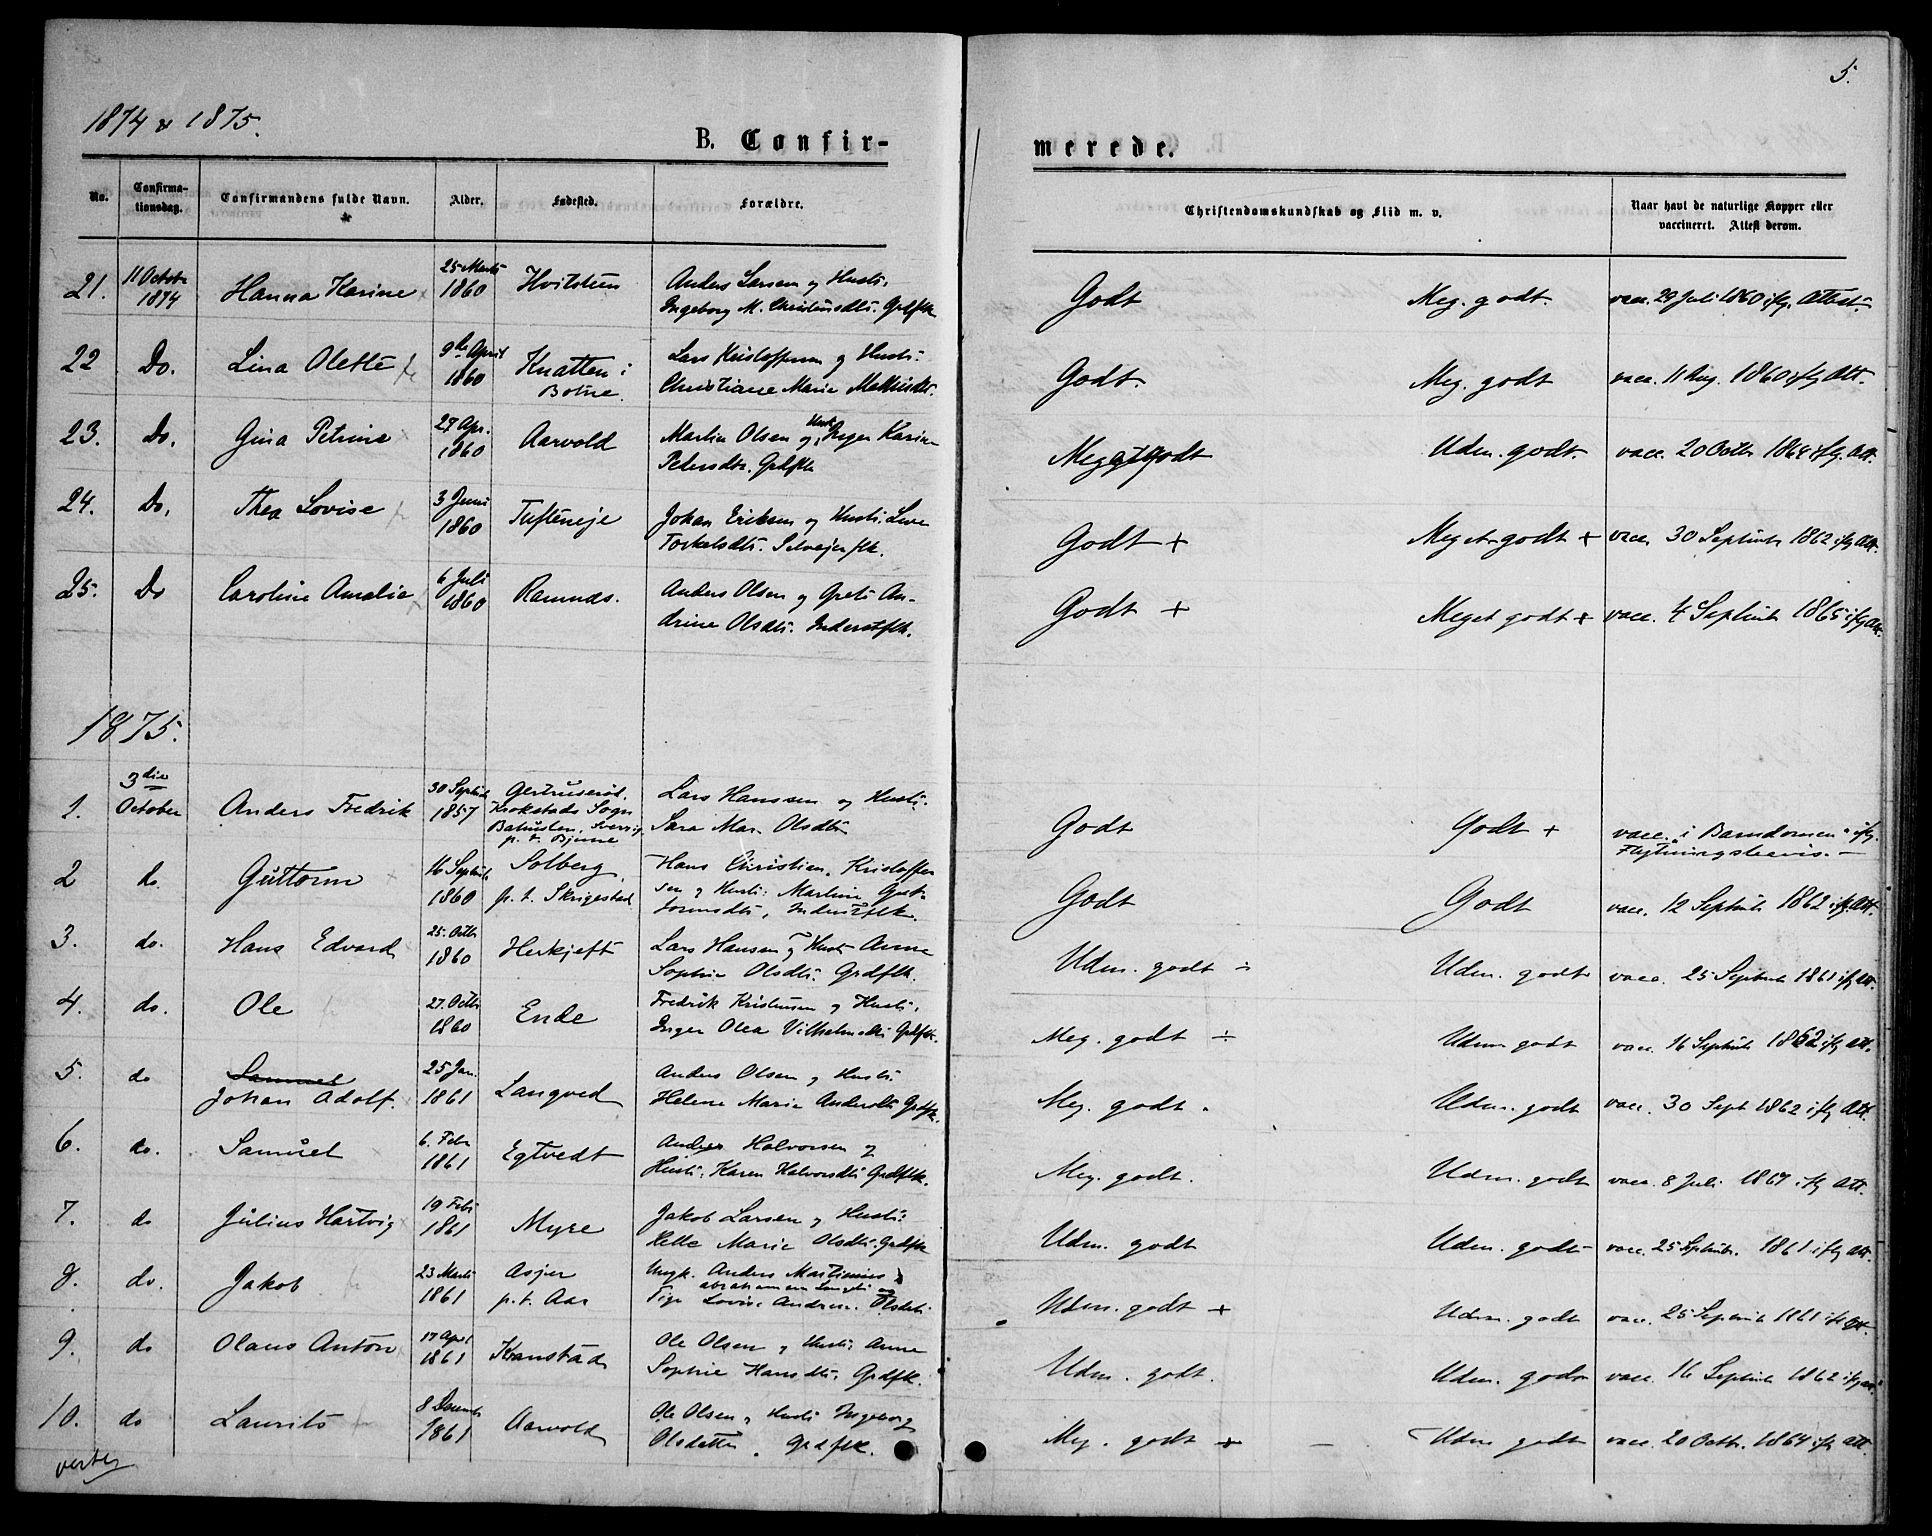 5.
1874 & 1875.
B. Confir-
merede.
No.
Confirma-
tionsdag.
Confirmandens fulde Navn.
Alder.
Fødested.
Forældre.
Christendomskundskab og Flid m. v.
Naar havt de naturlige Kopper eller
vaccineret. Attest derom.
21. 11 Octobr 1874 Hanna Karine 25 Marts 1860 Hvitsteen Anders Larsen og Hustr. Godt Meg. godt. vacc. 29 Juli 1860 ifg. Attest.
Ingeborg M. Christensdtr. Grdflk
22 Do. Lina Olette 9de April 1860 Knatten i Botne. Lars Kristoffersen og Hustr. Godt. Meg. godt vacc. 11 Aug. 1860 ifg Att.
Christiane Marie
23. Do. Gina Petrine 27 Apr. 1860 Aarvold Martin Olsen og Hustr. Inger Karine Meget godt Udm. godt. vacc. 20 Octbr 1864 ifg. Att.
Petersdtr. Grdflk
24. Do. Thea Lovise 3 Juni 1860 Tufteneje Johan Eriksen og Hustr. Godt + Meget godt + vacc. 30 Septemb 1862 ifg Att.
Torkelsdtr. Selvejerflk.
25. Do Caroline Amalie 6 Juli 1860 Ramnds. Anders Olsen og Grete An- Godt + Meget godt + vacc. 4 Septemb 1865 ifg Att.
drine Olsdtr. Inderstflk.
1875.
1. 3die October Anders Fredrik 30 Septemb 1857 Gertruserød, Lars Hanssen og Hustr. Godt Godt + vacc. "i Barndommen" ifg.
Krokstads Sogn Sara Mar. Olsdtr Flytningsbevis. —
Bahuslen, Sverrig
p. t. Bjune
2 do. Guttorm 16 Septemb 1860 Solberg, Hans Christian Kristoffer Godt Godt vacc. 12 Septemb 1862 ifg. Att.
p. t. Skrigestad sen og Hustr. Martine Gut-
tormsdtr, Inderstflk.
3. do. Hans Edvard 25. Octbr 1860 Herkjeft Lars Hansen og Hustr Anne Udm. godt ÷ Udm. godt vacc. 25 Septemb 1861 ifg Att.
Sophie Olsdtr. Grdflk.
4. do. Ole 27. Octbr 1860 Ende Fredrik Kristensen og Hustr. Meg. godt ÷ Udm godt vacc. 16 Septemb 1862 ifg Att.
Inger Olea Vilhelmsdtr Grdflk.
5. do Samuel 25 Jan. 1861 Langved Anders Olsen og Hustr. Meg. godt. Udm. godt vacc. 30 Sept 1862 ifg Att.
Johan Adolf. Helene Marie Andersdtr Grdflk.
6. do. Samuel 6. Febr 1861 Egtvedt Anders Halvorsen og Meg. godt. Udm. godt vacc. 8 Juli 1867 ifg Att.
Hustr. Karen Halvorsdtr Grdflk.
7. do Julius Hartvig 19 Febr 1861 Myre Jakob Larsen og Hustr. Udm. godt Udm. godt vacc. 25 Septemb. 1861 ifg Att.
Marie Olsdtr. Grdflk
8. do. Jakob 23 Marts 1861 Asjer Ungk. Anders Martinius Udm. godt + Udm. godt vacc. 25 Septemb 1861 ifg Att.
p. t. Aas Abrahamsen og
Pige Lovise Andrea Olsdatr
9. do Olaus Anton 17 April 1861 Kranstad Ole Olsen og Hustr. Anne Udm. godt. Udm. godt vacc. 16 Septemb 1862 ifg Att.
Sophie Hansdtr. Grdflk.
10. do Laurits 8 Decemb 1861 Aarvold Ole Olsen og Hustr Ingeborg Meg. godt + — Udm godt vacc. 20 Octbr. 1864 ifg Att.
Olsdatter, Grdflk.
verte